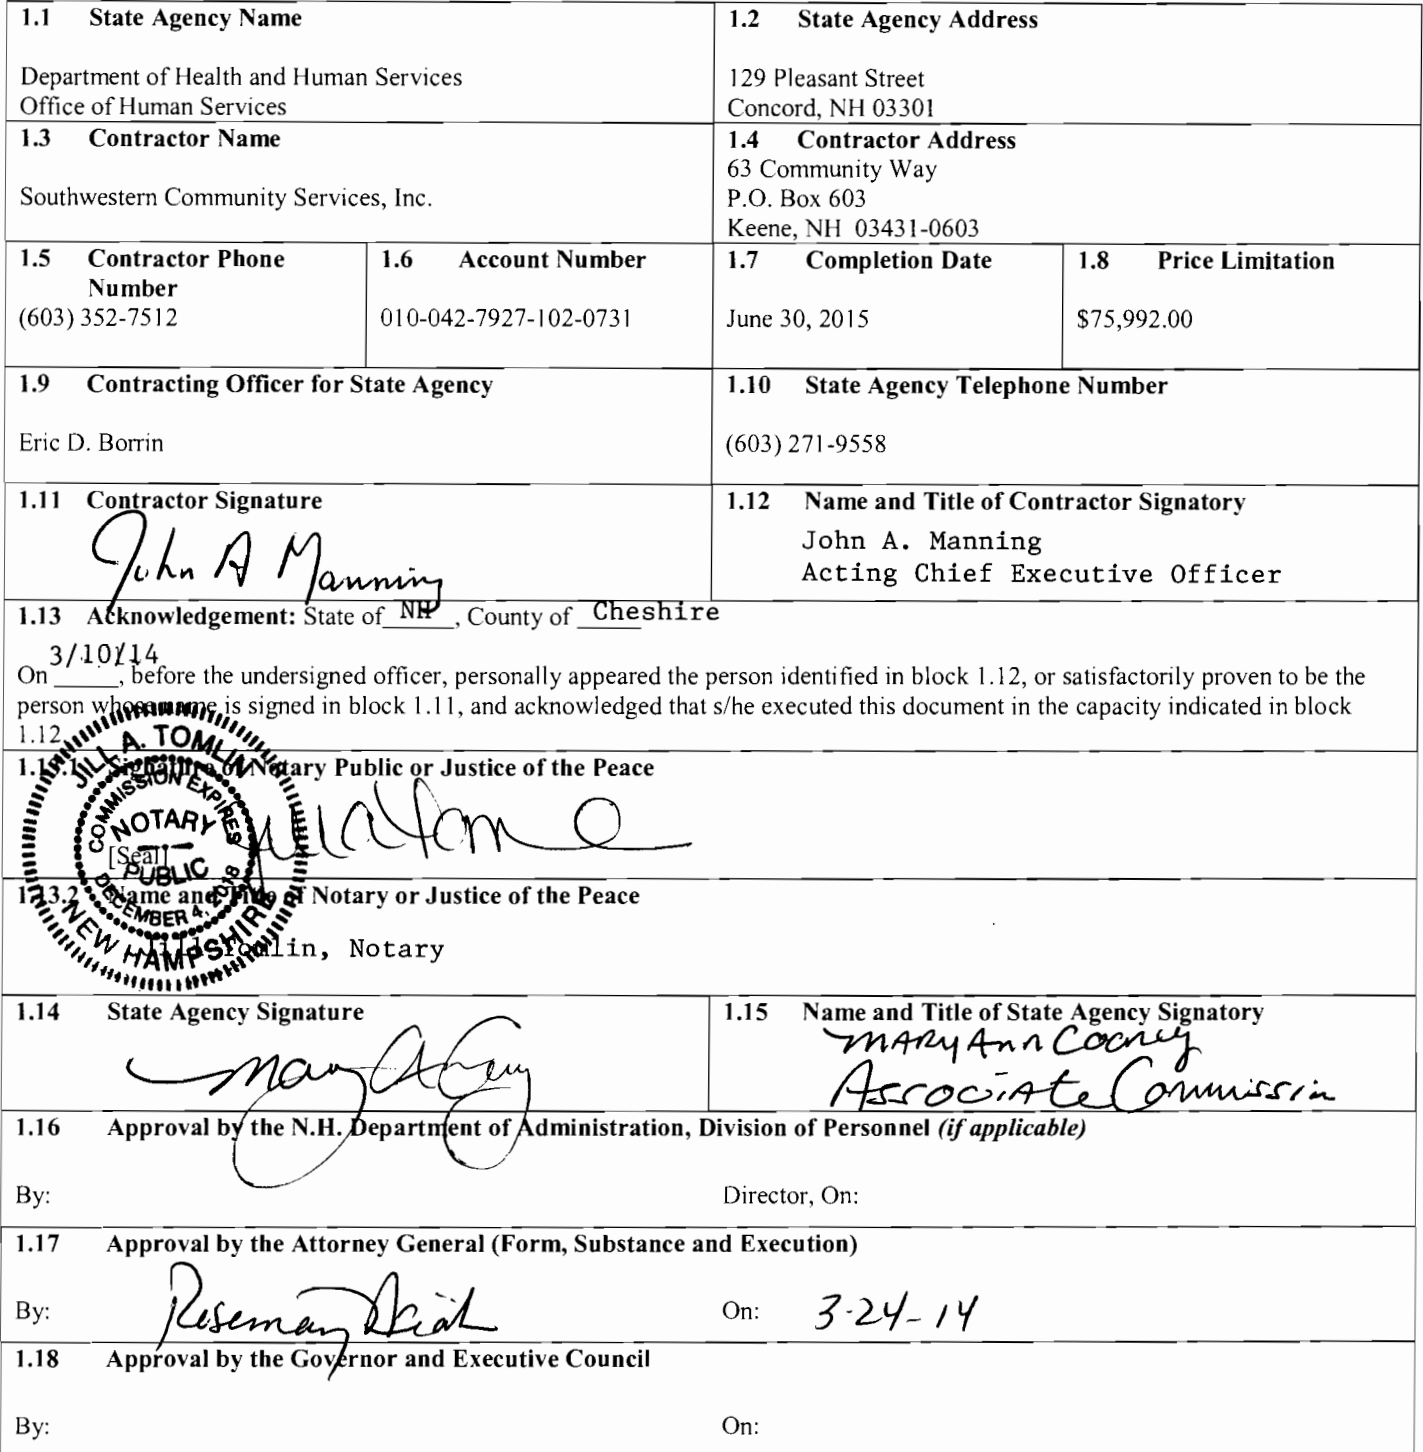 1.1 State Agency Name
Department of Health and Human Services
Office of Human Services
1.2 State Agency Address
129 Pleasant Street
Concord, NH 03301
1.3 Contractor Name
Southwestern Community Services, Inc.
1.4 Contractor Address
63 Community Way
P.O. Box 603
Keene, NH 03431-0603
1.5 Contractor Phone
Number
(603) 352-7512
1.6 Account Number
010-042-7927-102-0731
1.7 Completion Date
June 30, 2015
1.8 Price Limitation
$75,992.00
1.9 Contracting Officer for State Agency
Eric D. Borrin
1.10 State Agency Telephone Number
(603) 271-9558
1.11 Contractor Signature
John A Manning
1.12 Name and Title of Contractor Signatory
John A. Manning
Acting Chief Executive Officer
1.13 Acknowledgement: State of NH, County of Cheshire
3/10/14
On _____, before the undersigned officer, personally appeared the person identified in block 1.12, or satisfactorily proven to be the
person whose name is signed in block 1.11, and acknowledged that s/he executed this document in the capacity indicated in block
1.12.
1.13.1 Signature of Notary Public or Justice of the Peace
JILL A. TOMLIN
COMMISSION EXPIRES
NOTARY
[Seal]
PUBLIC
DECEMBER 4, 2018
NEW HAMPSHIRE
1.13.2 Name and Title of Notary or Justice of the Peace
Jill Tomlin, Notary
1.14 State Agency Signature
1.15 Name and Title of State Agency Signatory
MARY Ann Cooney
Associate Commissin
1.16 Approval by the N.H. Department of Administration, Division of Personnel (if applicable)
By:
Director, On:
1.17 Approval by the Attorney General (Form, Substance and Execution)
By: Rosemary
On: 3-24-14
1.18 Approval by the Governor and Executive Council
By:
On: